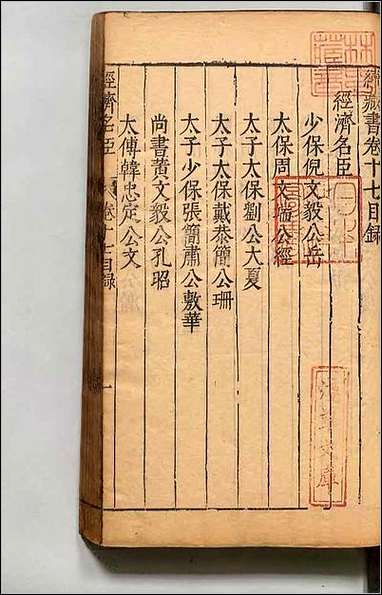 續藏書卷十七目録
經濟名臣
少保倪文毅公岳
太保周文端公經
太子太保劉公大夏
太子太保戴恭簡公珊
太子少保張簡肅公敷華
尚書黃文毅公孔昭
太傅韓忠定公文
經濟名臣 卷十七目録 一